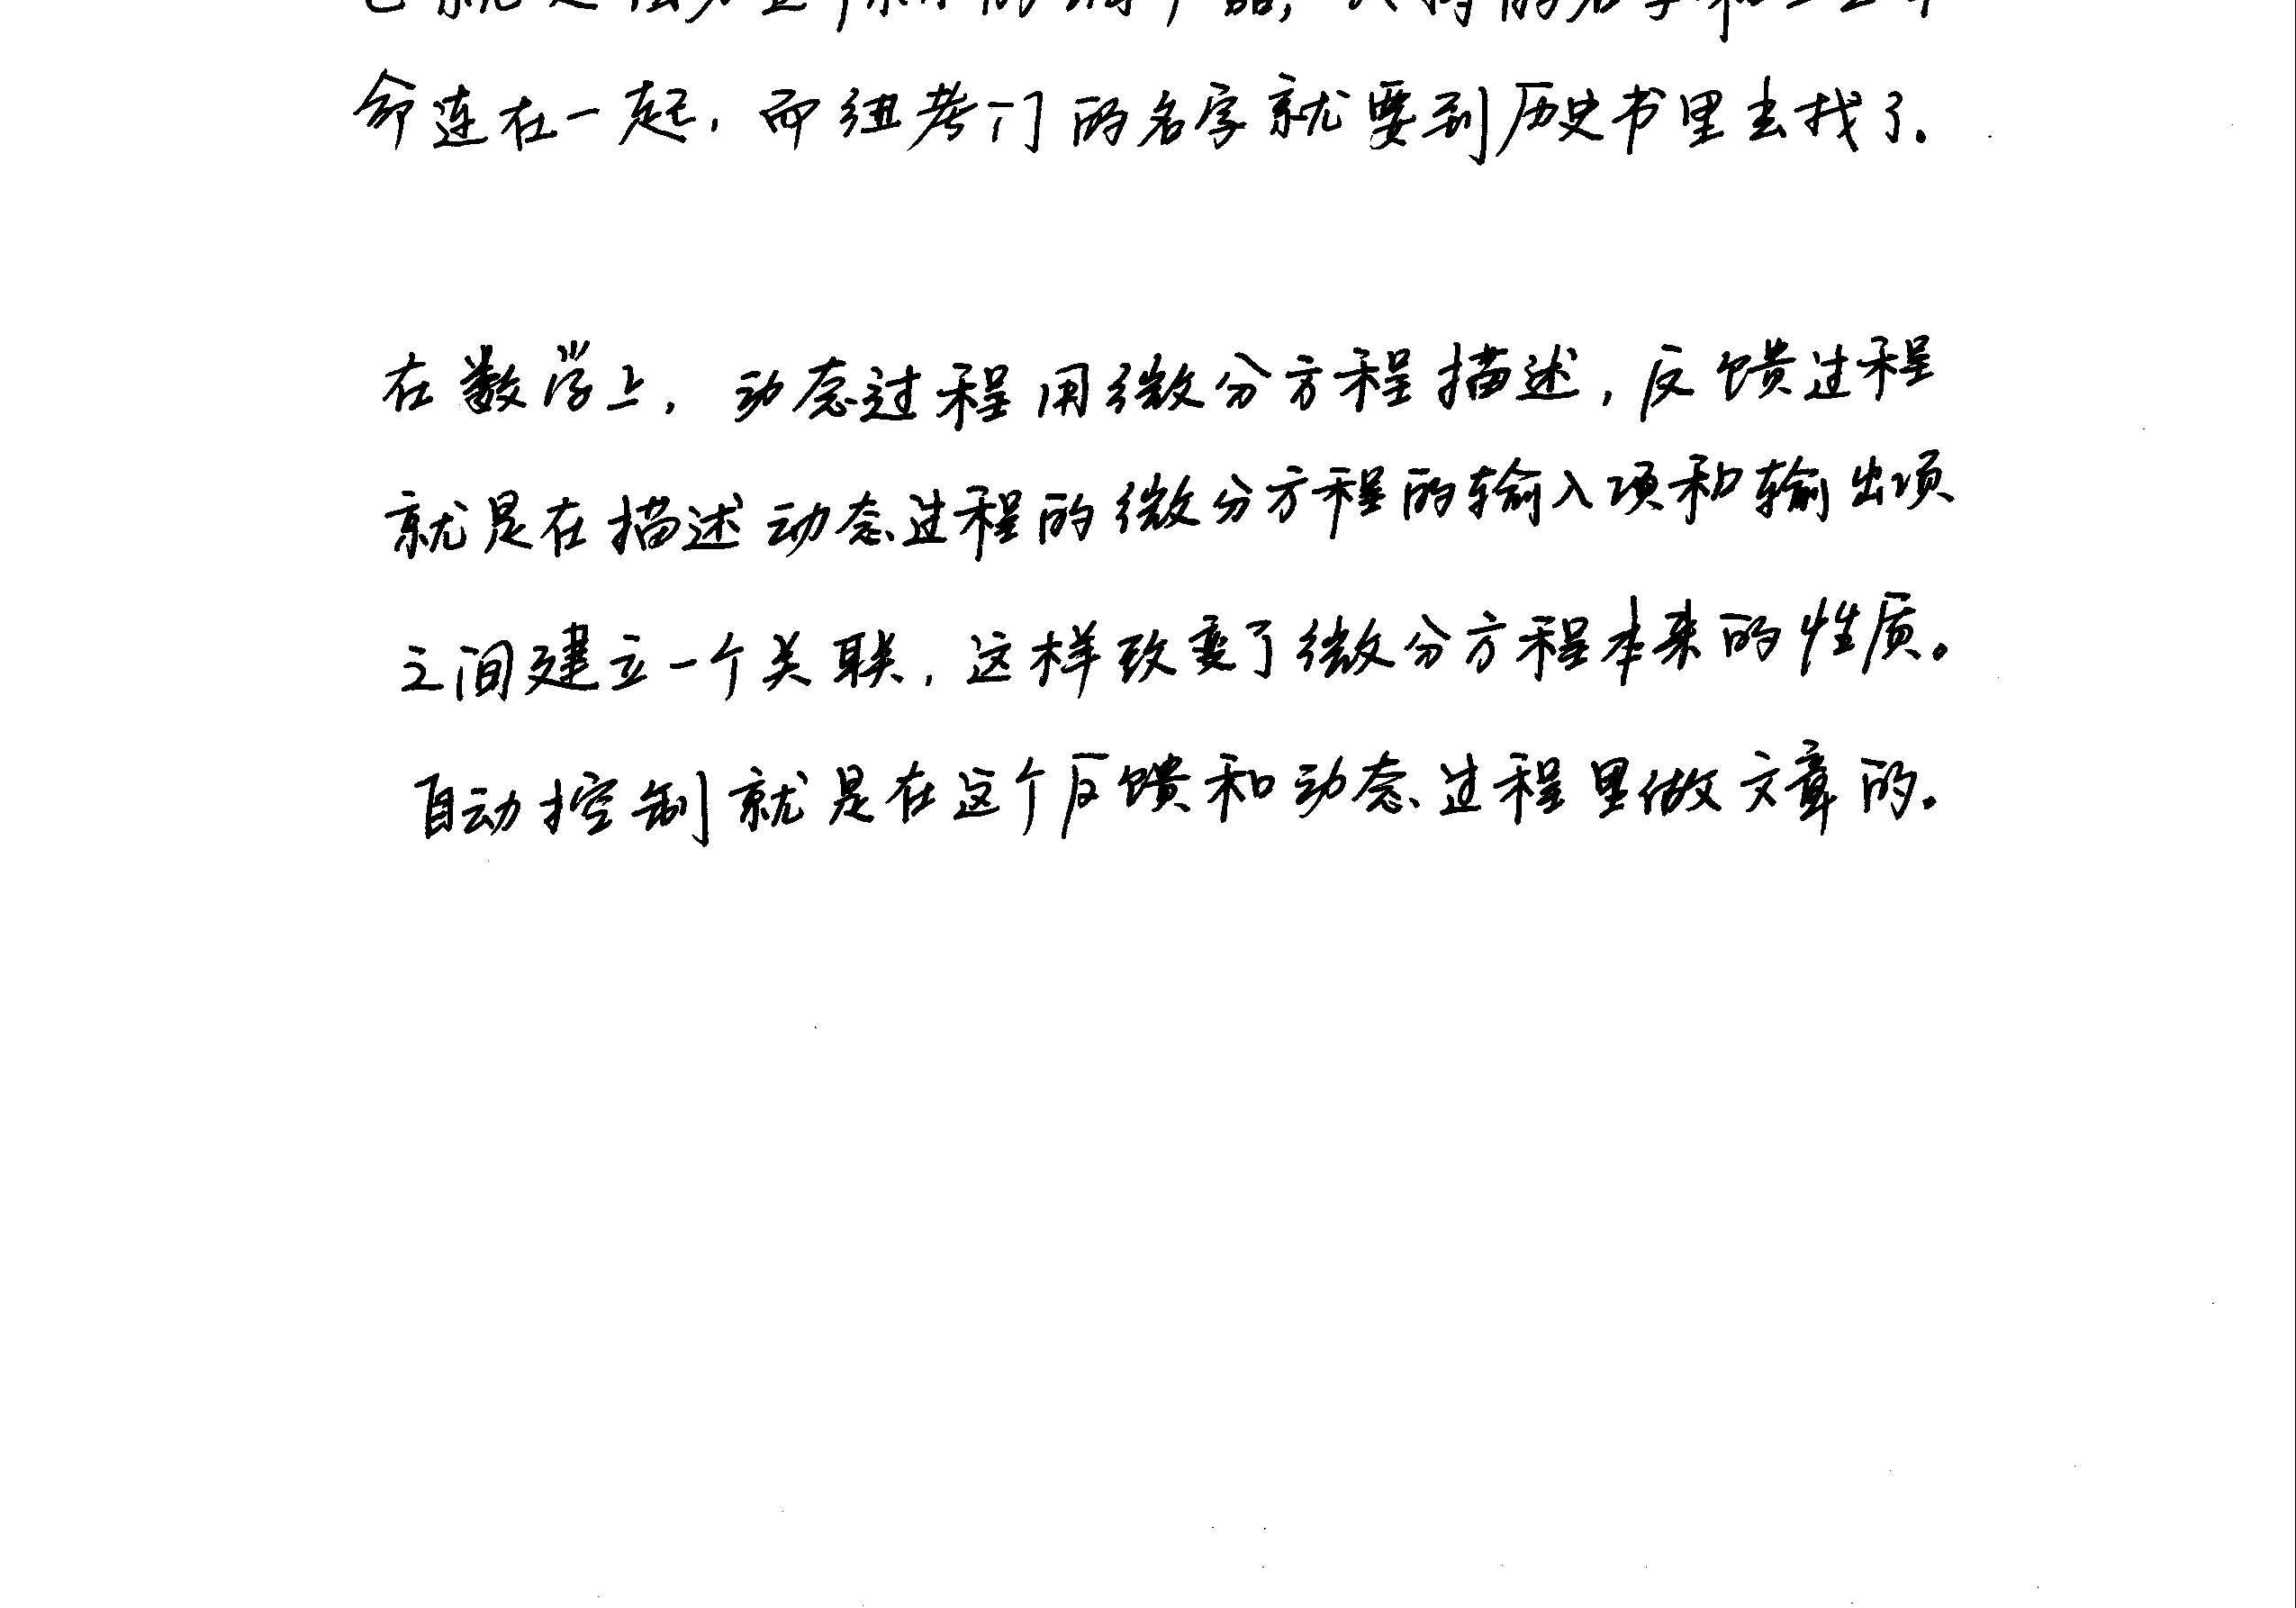 命连在一起，而纽考门的名字就要到历史书里去找了.
在数学上，动态过程用微分方程描述，反馈过程
就是在描述动态过程的微分方程的输入项和输出项
之间建立一个关联，这样改变了微分方程本来的性质。
自动控制就是在这个反馈和动态过程里做文章的.